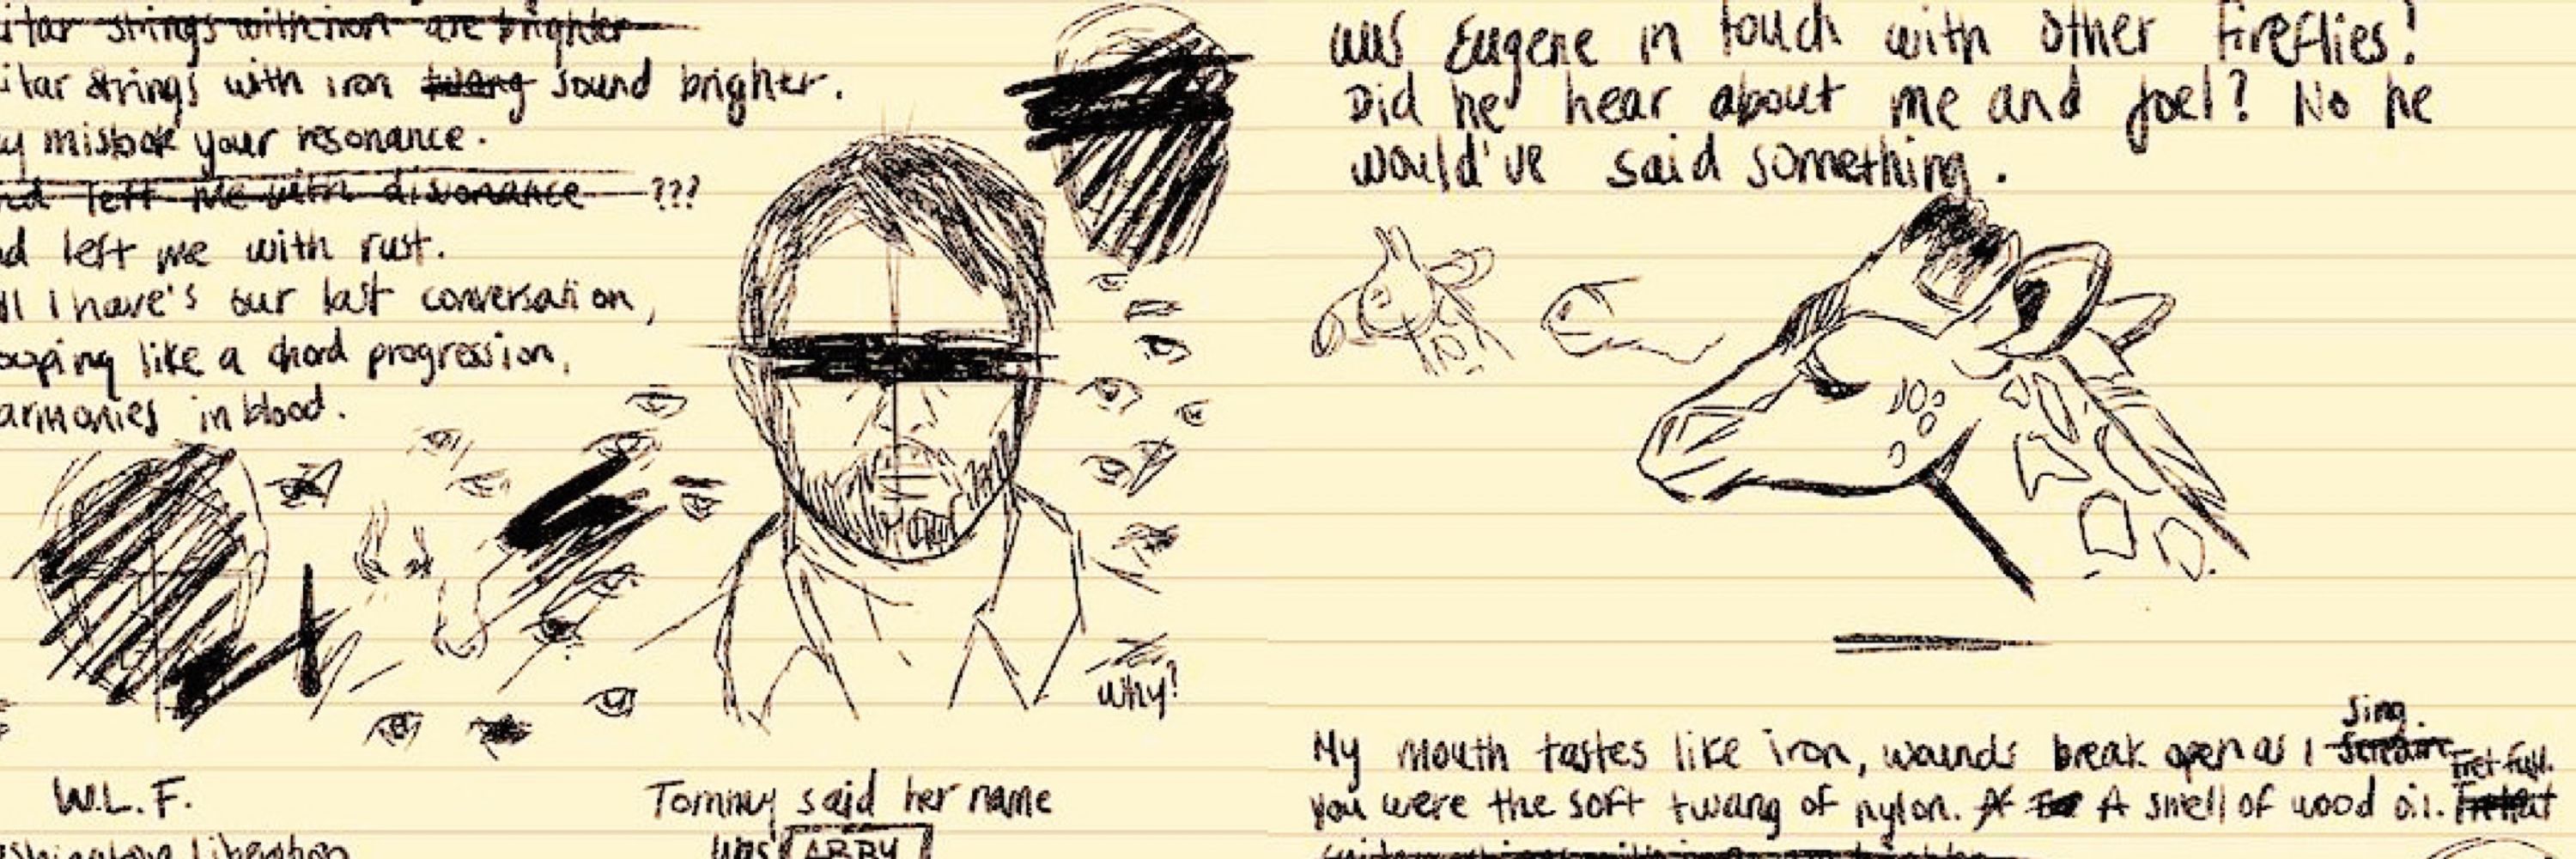 strings with iron are brighter
strings with iron twang sound brighter.
mistook your resonance.
left me with dissonance ???
left me with rust.
I have's our last conversation,
like a chord progression,
in blood.
why?
W.L.F.
Tommy said her name
was ABBY
was Eugene in touch with other Fireflies?
Did he hear about me and Joel? No he
would've said something.
sing.
My mouth tastes like iron, wounds break open as I scream
Fret full.
you were the soft twang of nylon. A smell of wood oil.